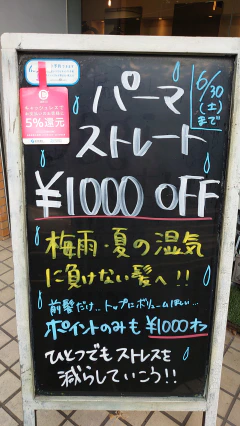 パーマ
6/30
(土)
まで
ストレート
¥1000 OFF
キャッシュレスで
5%還元
梅雨・夏の湿気
に負けない髪へ!!
前髪だけ…トップにボリュームほしい…
ポイントのみも ¥1000オフ
ひとつでもストレスを
減らしていこう!!